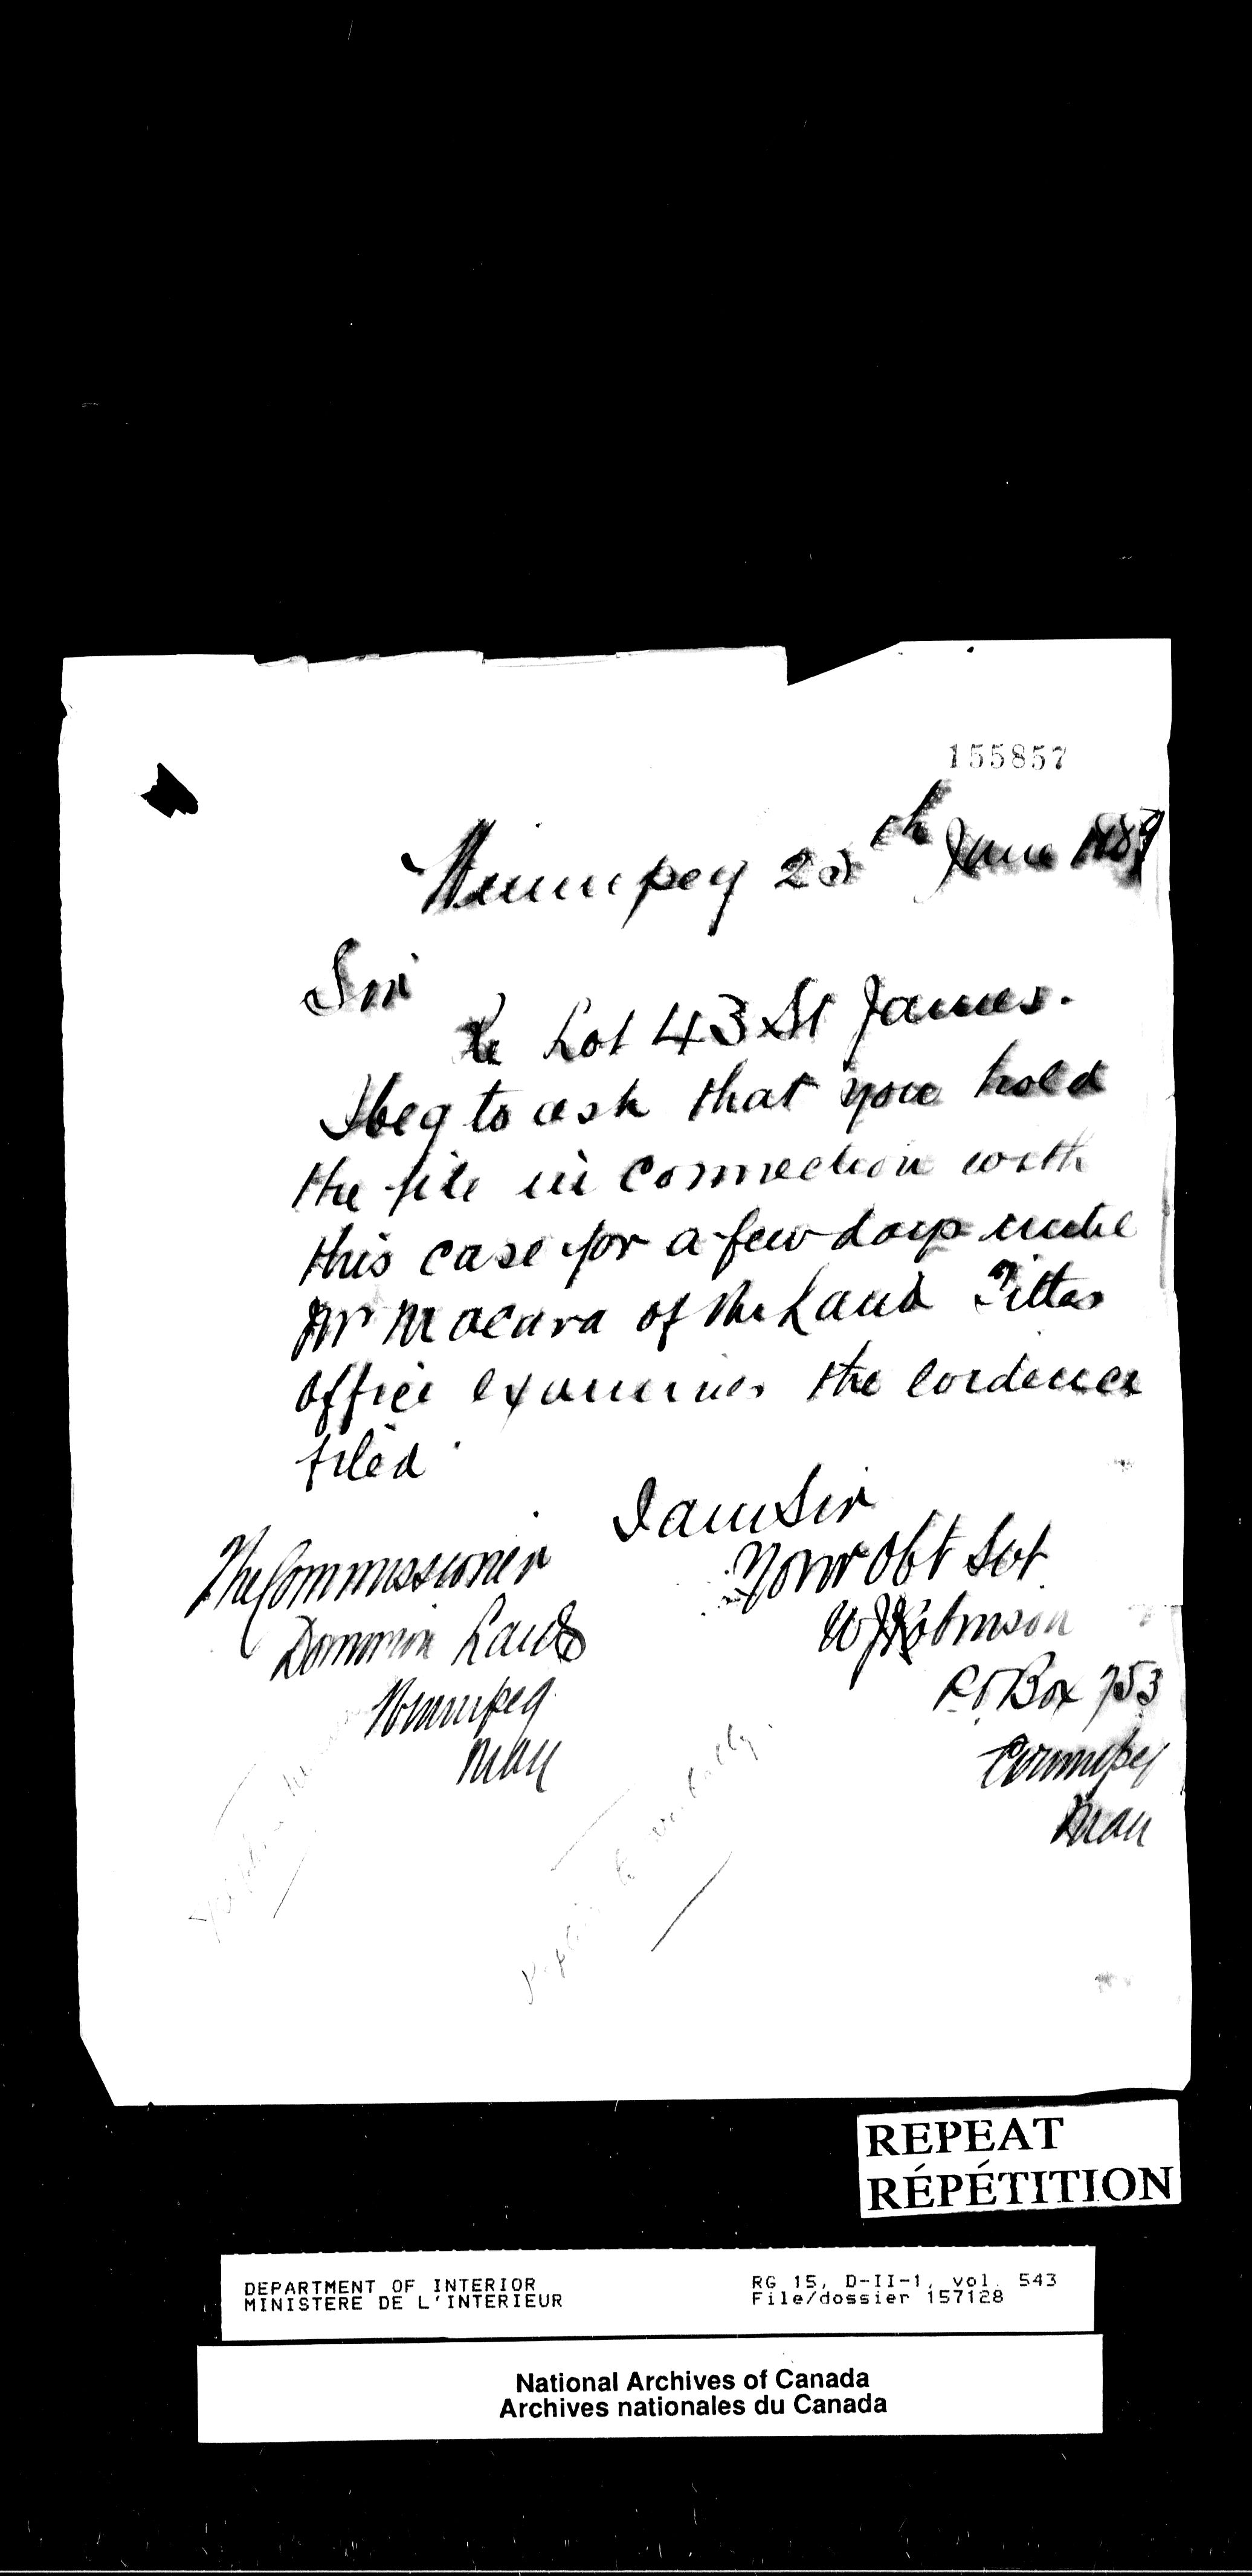 155857
Winnipeg 25th June 1889
Sir
Re Lot 43 St James.
I beg to ask that you hold
the file in connection with
this case for a few days until
Mr Macara of the Land Titles
Office examines the evidence
filed.
I am Sir
Your Obt Svt
W J Robinson
P.O. Box 753
Winnipeg
Man
The Commissioner
Dominion Lands
Winnipeg
Man
REPEAT
RÉPÉTITION
DEPARTMENT OF INTERIOR
MINISTERE DE L'INTERIEUR
RG 15, D-II-1, vol. 543
File/dossier 157128
National Archives of Canada
Archives nationales du Canada